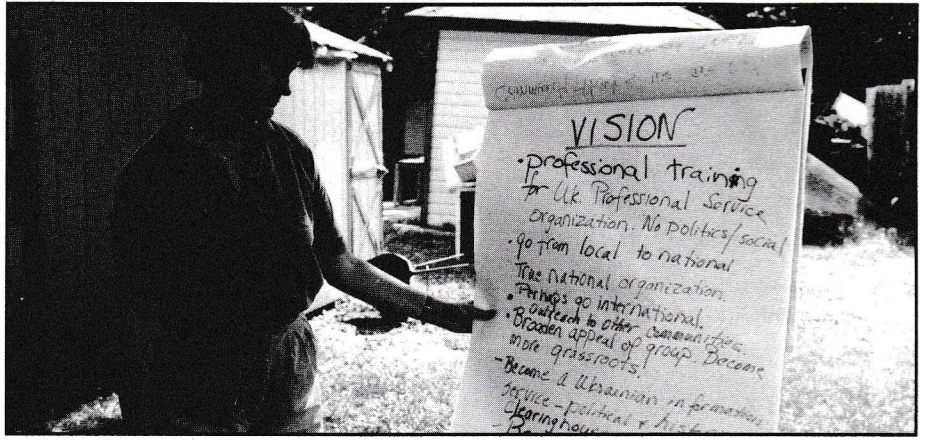 VISION
• professional training
for Uk. Professional Service
organization. No politics/social
• go from local to national
True national organization.
Perhaps go international.
• Outreach to other communities
• Broaden appeal of group Become
more grassroots.
- Become a Ukrainian information
service - political &
Clearinghouse